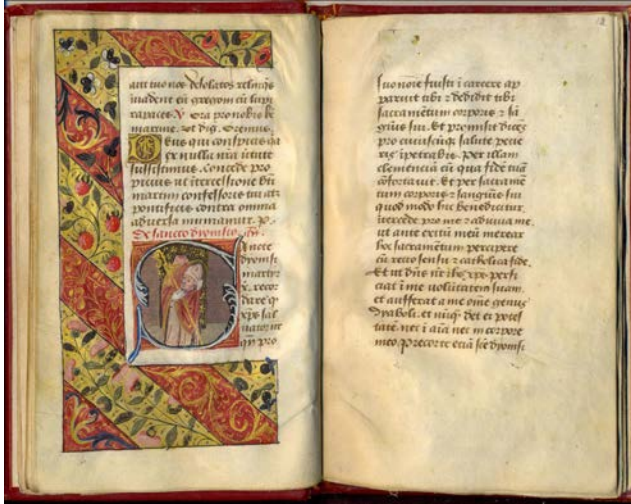 aut cui nos desolatos relinq̄s
inuadent en̄ gregem tuū lupi
rapaces V Ora pro nobis be
martine. vt dig. Oremus.
Deus qui conspicis qa
ex nulla nr̄a uirtute
subsistimus. concede pro
picius ut ītercessione bt̄i
martini confessoris tui atq̄
pontificis contra omnia
aduersa muniamur. p.
De sancto dyonisio. an̄
Sancte
dyonisi
martyr
x. recor
dare q̄
xp̄s sal
uator nr̄
qn̄ pro
12
suo noīe fuisti ī carcere ap
paruit tibi ⁊ dedidit tibi
sacramētum corporis ⁊ sā
gūis sui. Et promisit dicēs
pro cuiuscūq̄ salute pecie
ris īpetrabis. Per illam
clemencia eū qua fidē tuā
cōfortauit. Et per sacramē
tum corporis ⁊ sanguīs sui
quod modo hic benedicitur
ītercede pro me ⁊ adiuua me.
ut ante exitū meū merear
hoc sacramētum percipere
cū recto sensu ⁊ catholica fide.
Et ut dn̄s nr̄ ih̄c xp̄c perfi
ciat ī me volūtatem suam.
et aufferat a me om̄e genus
dyaboli. et nūq̄ det ei potes
tatē nec ī aīa nec in corpore
meo. Precor te etiā sc̄e dyonisi